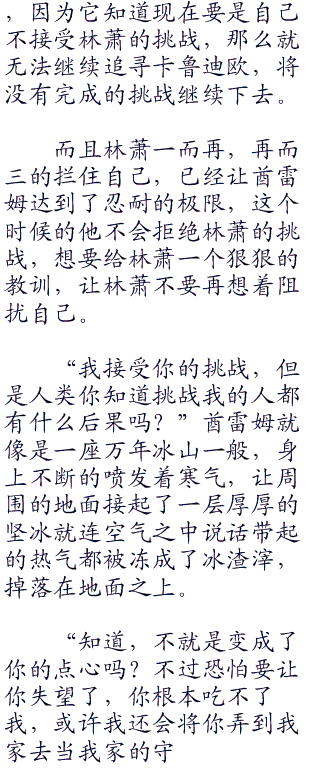 ，因为它知道现在要是自己
不接受林萧的挑战，那么就
无法继续追寻卡鲁迪欧，将
没有完成的挑战继续下去。
而且林萧一而再，再而
三的拦住自己，已经让酋雷
姆达到了忍耐的极限，这个
时候的他不会拒绝林萧的挑
战，想要给林萧一个狠狠的
教训，让林萧不要再想着阻
扰自己。
“我接受你的挑战，但
是人类你知道挑战我的人都
有什么后果吗？”酋雷姆就
像是一座万年冰山一般，身
上不断的喷发着寒气，让周
围的地面接起了一层厚厚的
坚冰就连空气之中说话带起
的热气都被冻成了冰渣滓，
掉落在地面之上。
“知道，不就是变成了
你的点心吗？不过恐怕要让
你失望了，你根本吃不了
我，或许我还会将你弄到我
家去当我家的守